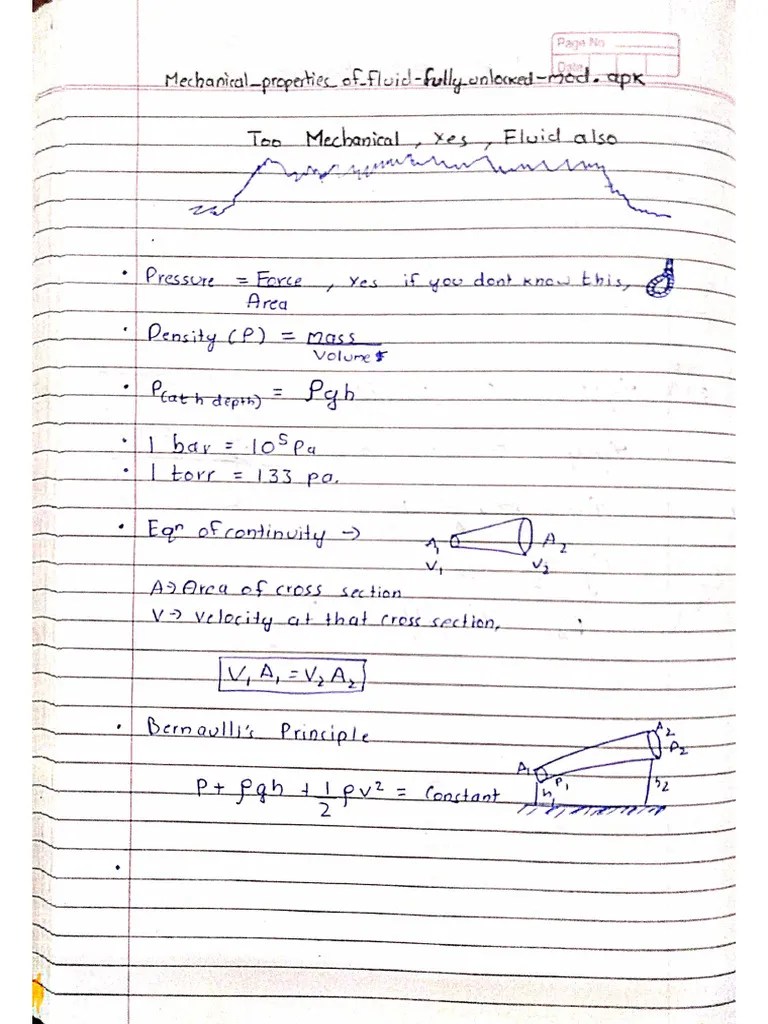 Page No
Date
Mechanical_properties_of_fluid-fully_unlocked-mod.apk
Too Mechanical, Yes, Fluid also
• Pressure = Force , Yes if you dont know this,
Area
• Density (ρ) = mass
Volume
• P(at h depth) = ρgh
• 1 bar = 10⁵ Pa
• 1 torr = 133 pa.
• Eqⁿ of continuity →
A₁ A₂
V₁ V₂
A → Area of cross section
V → velocity at that cross section,
V₁ A₁ = V₂ A₂
• Bernaulli's Principle
A₂
P₂
A₁
P₁
h₁
h₂
P + ρgh + 1/2 ρv² = Constant
•